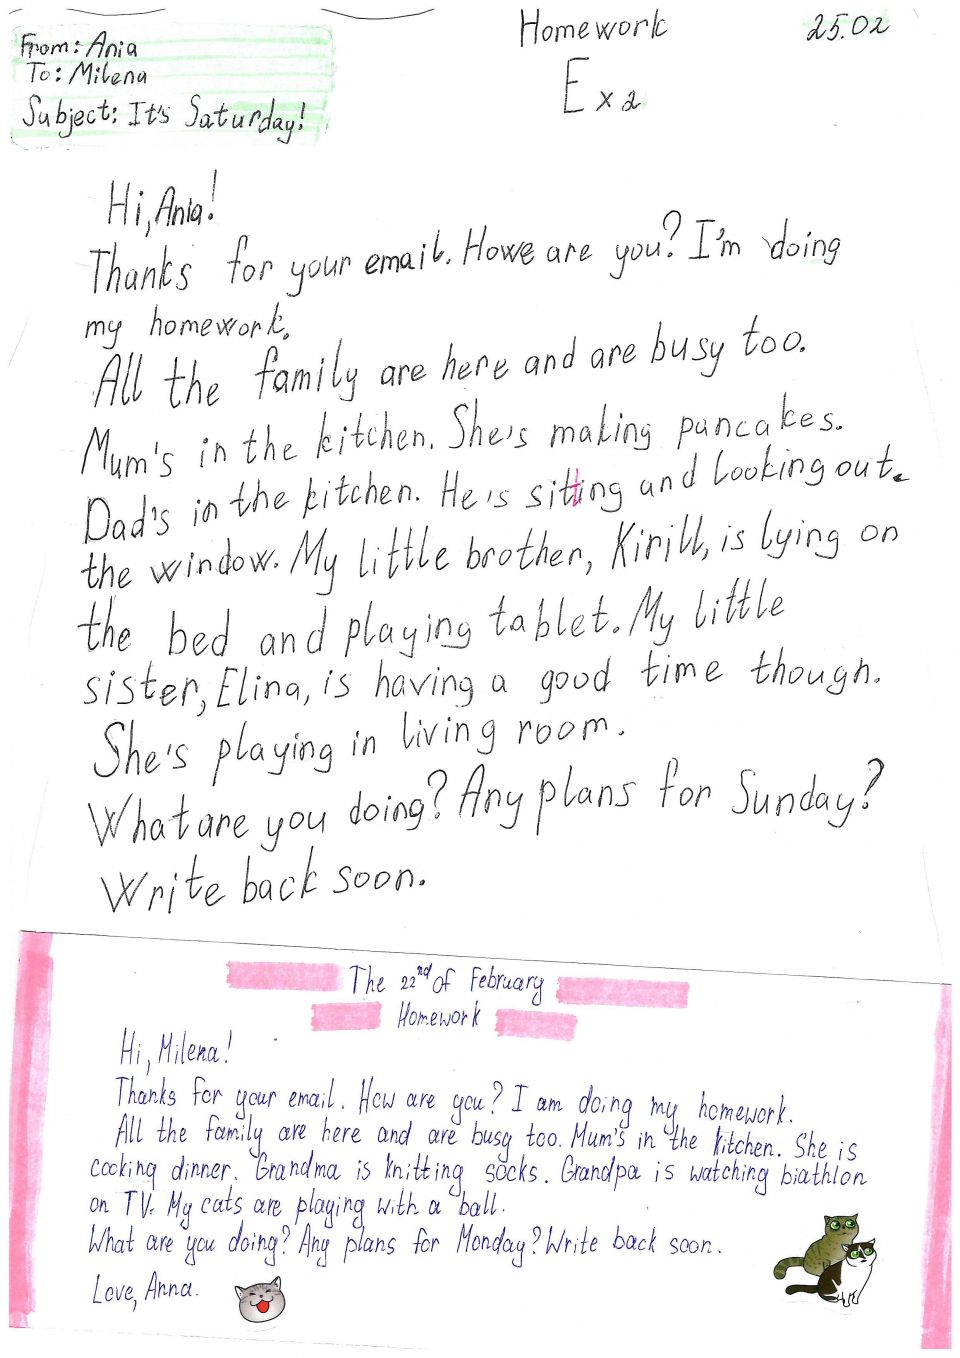 From: Ania
To: Milena
Subject: It's Saturday!
Homework
25.02
Ex 2
Hi, Ania!
Thanks for your email. Howe are you? I'm doing
my homework.
All the family are here and are busy too.
Mum's in the kitchen. She's making pancakes.
Dad's in the kitchen. He's sitting and looking out.
the window. My little brother, Kirill, is lying on
the bed and playing tablet. My little
sister, Elina, is having a good time though.
She's playing in living room.
What are you doing? Any plans for Sunday?
Write back soon.
The 22nd of February
Homework
Hi, Milena!
Thanks for your email. How are you? I am doing my homework.
All the family are here and are busy too. Mum's in the kitchen. She is
cooking dinner. Grandma is knitting socks. Grandpa is watching biathlon
on TV. My cats are playing with a ball.
What are you doing? Any plans for Monday? Write back soon.
Love, Anna.